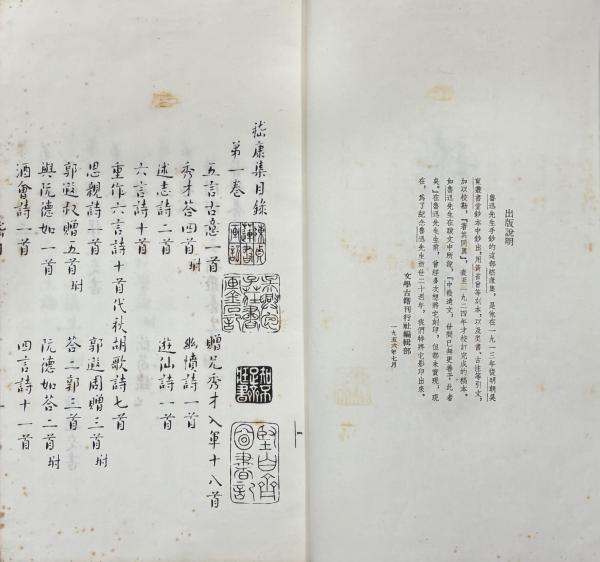 出版說明
魯迅先生手鈔的這部嵇康集，是他在一九一三年從明朝吳
寬叢書堂鈔本中鈔出，用黃省曾等刻本，以及類書、古注等引文，
加以校勘，「著其同異」，直至一九二四年才校訂完成的稿本。
如魯迅先生在跋文中所說，「中散遺文，世間已無更善于此者
矣。」在魯迅先生生前，曾經多次想將它刻印，但都未實現，現
在，爲了紀念魯迅先生逝世二十週年，我們特將它影印出來。
文學古籍刊行社編輯部
一九五六年七月
嵇康集目錄
第一卷
五言古意一首 贈兄秀才入軍十八首
秀才答四首附 幽憤詩一首
述志詩二首 遊仙詩一首
六言詩十首
重作六言詩十首代秋胡歌詩七首
思親詩一首 郭遐周贈三首附
郭遐叔贈五首附 答二郭三首
與阮德如一首 阮德如答二首附
酒會詩一首 四言詩十一首
堅白齋圖書記